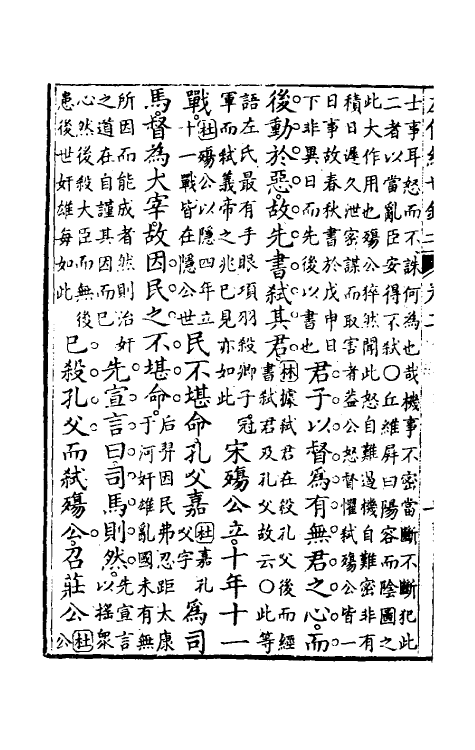 士事耳怒而不誅何為也哉機事不密當斷不斷犯此
二者以當亂臣安得不弒〇丘維屏曰陽容而陰圖之
此大作用也殤公猝然聞此怒自難遏機自難密非有
積日遲久泄密謀而取害者蓋公怒督懼弒殤公皆一
日事故春秋書於戊申日
下非異日而先後以書也
君子以督為有無君之心而
後動於惡故先書弒其君
林據弒君在殺孔父後而經
書弒君及孔父故云〇此等
語左氏最有手眼項羽殺卿子冠
軍而弒義帝之兆已見亦如此
宋殤公立十年十一
戰
杜殤公以隱四年立
十一戰皆在隱公世
民不堪命孔父嘉
杜嘉孔
父字
為司
馬督為大宰故因民之不堪命
后羿因民弗忍距太康
于河奸雄亂國未有無
所因而能成者然則治奸
之道在自謹其因而已
先宣言曰司馬則然
先宣言
以搖衆
心然後殺大臣而無後
患後世奸雄每如此
已殺孔父而弒殤公召莊公
杜
公